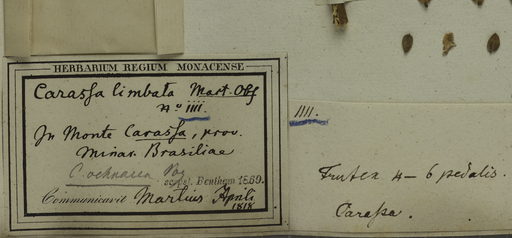 HERBARIUM REGIUM MONACENSE
Carassa limbata Mart. Obs
No 1111.
In Monte Carassa, prov.
Minar. Brasiliae
C. ochnacea
secundum Bentham 1869.
Communicavit Martius Aprili
1818
1111.
Frutex 4-6 pedalis.
Carassa.